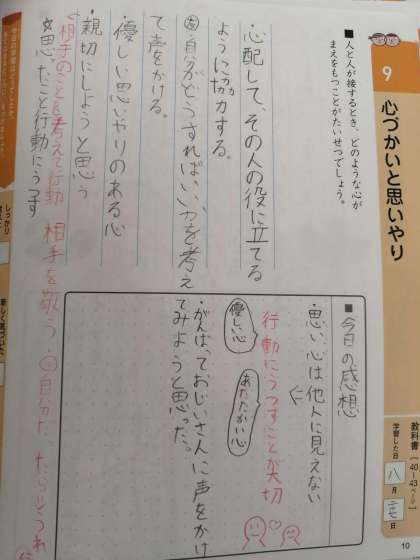 9
心づかいと思いやり
教科書
[40〜43ページ]
学習した日
八月二七日
10
■人と人が接するとき、どのような心が
まえをもつことがたいせつでしょう。
・心配して、その人の役に立てる
ように協力する。
・自分がどうすればいいかを考え
て声をかける。
・優しい思いやりのある心
・親切にしようと思う
☆思ったこと行動にうつす
相手のことを考えて行動
相手を敬う
■今日の感想
・思い、心は他人に見えない
行動にうつすことが大切
優しい心
あたたかい心
・がんばっておじいさんに声をかけ
てみようと思った。
しっかり